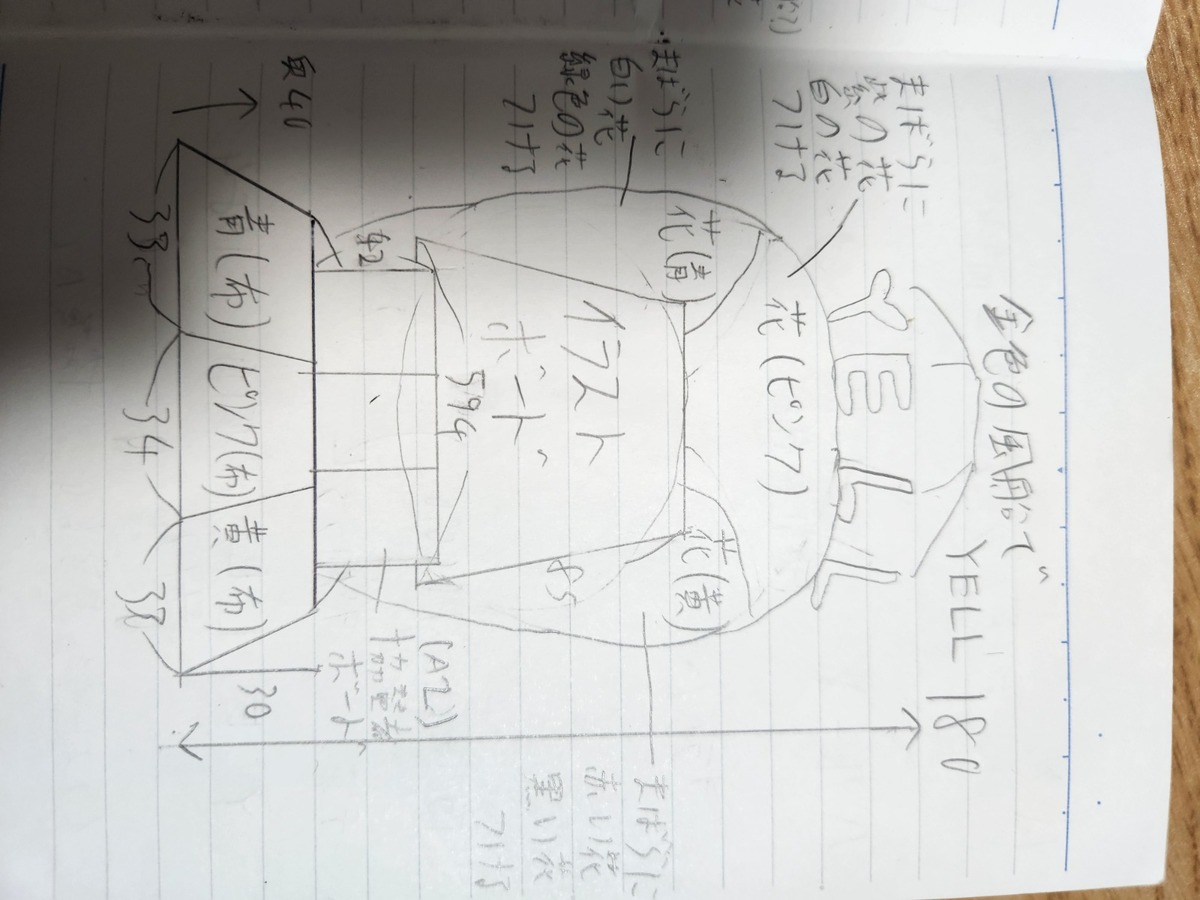 金色の風船で
YELL
180
YELL
まばらに
紫の花
白の花
つける
まばらに
白い花
緑色の花
つける
花(ピンク)
花(青)
花(黄)
イラスト
ボード
85
594
42
まばらに
赤い花
黒い花
つける
(A2)
ボード
青(布)
ピンク(布)
黄(布)
30
33
34
33
40